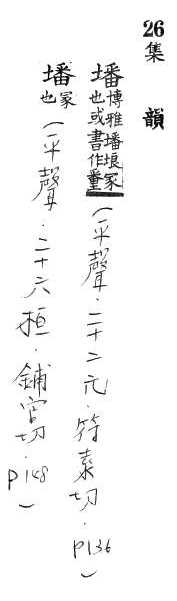 26集 韻
墦博雅墦埌冢也或書作(平聲.二十二元.符袁切.p136)
墦冢也(平聲.二十六桓.鋪官切.p148)